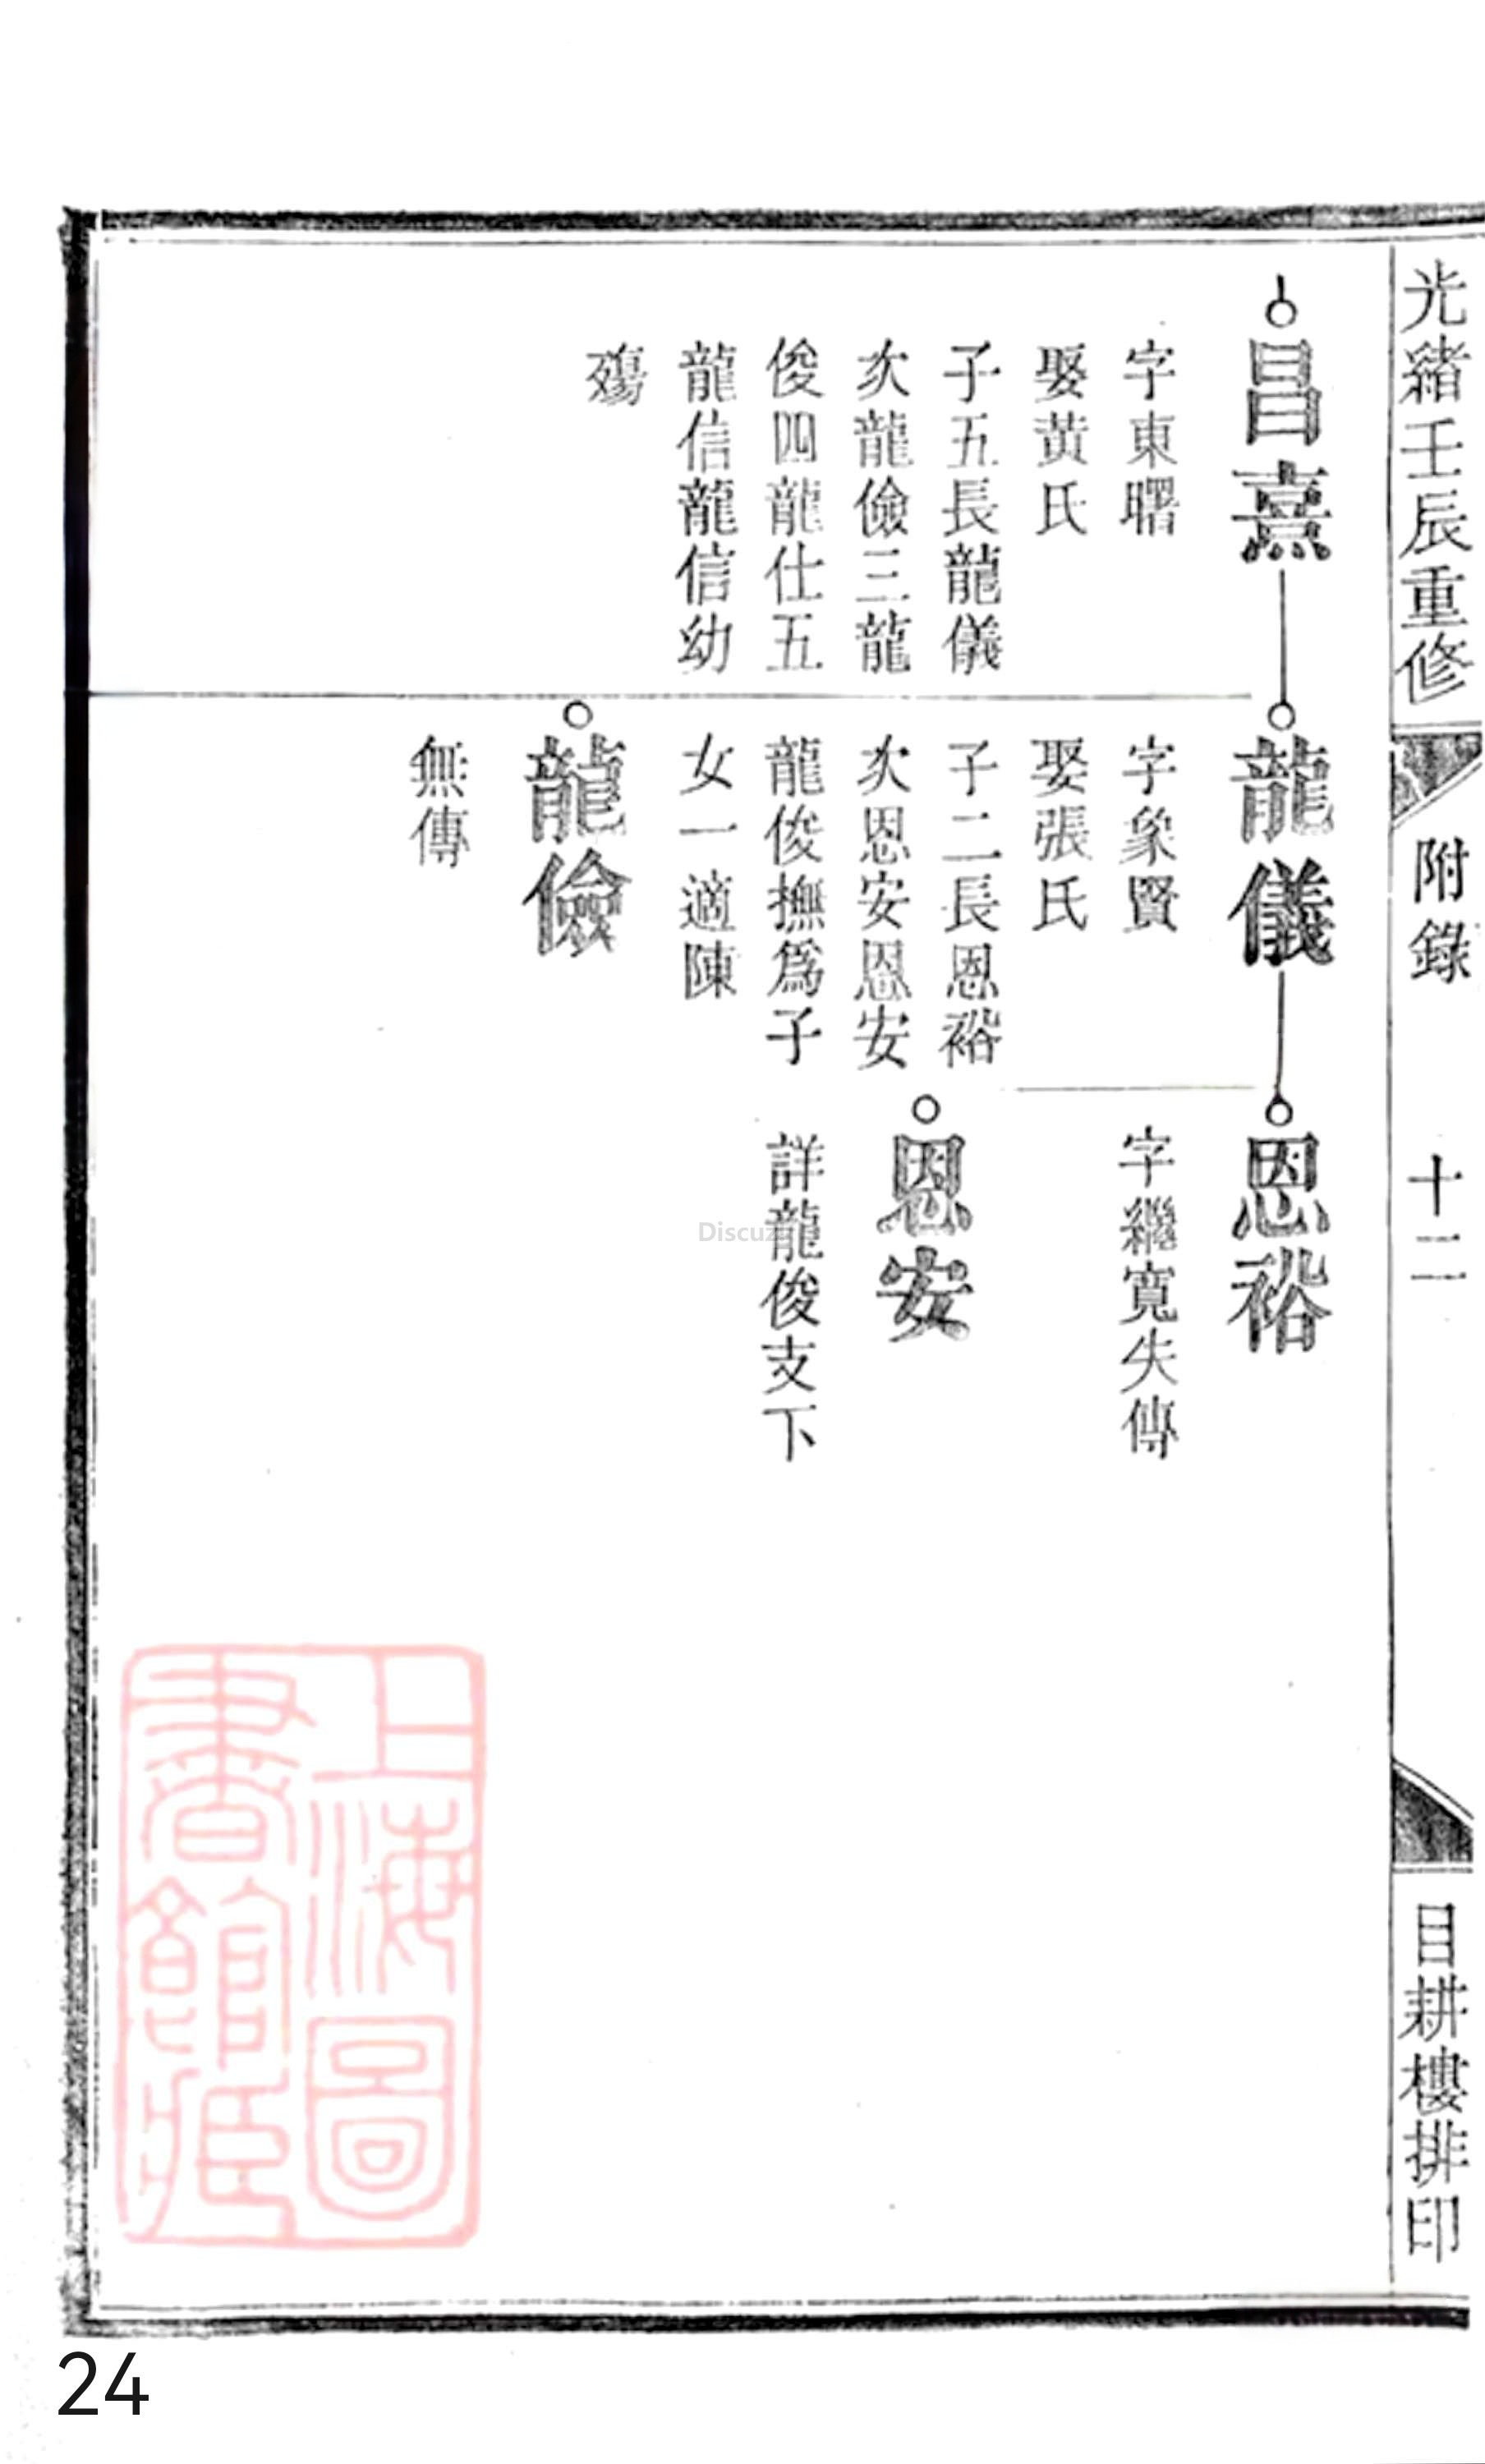 光緒壬辰重修
附錄
十二
目耕樓排印
昌熹
字東曙
娶黃氏
子五長龍儀
次龍儉三龍
俊四龍仕五
龍信龍信幼
殤
龍儀
字象賢
娶張氏
子二長恩裕
次恩安恩安
龍俊撫爲子
女一適陳
龍儉
無傳
恩裕
字繼寬失傳
恩安
詳龍俊支下
上海圖
書館藏
Discuz
24